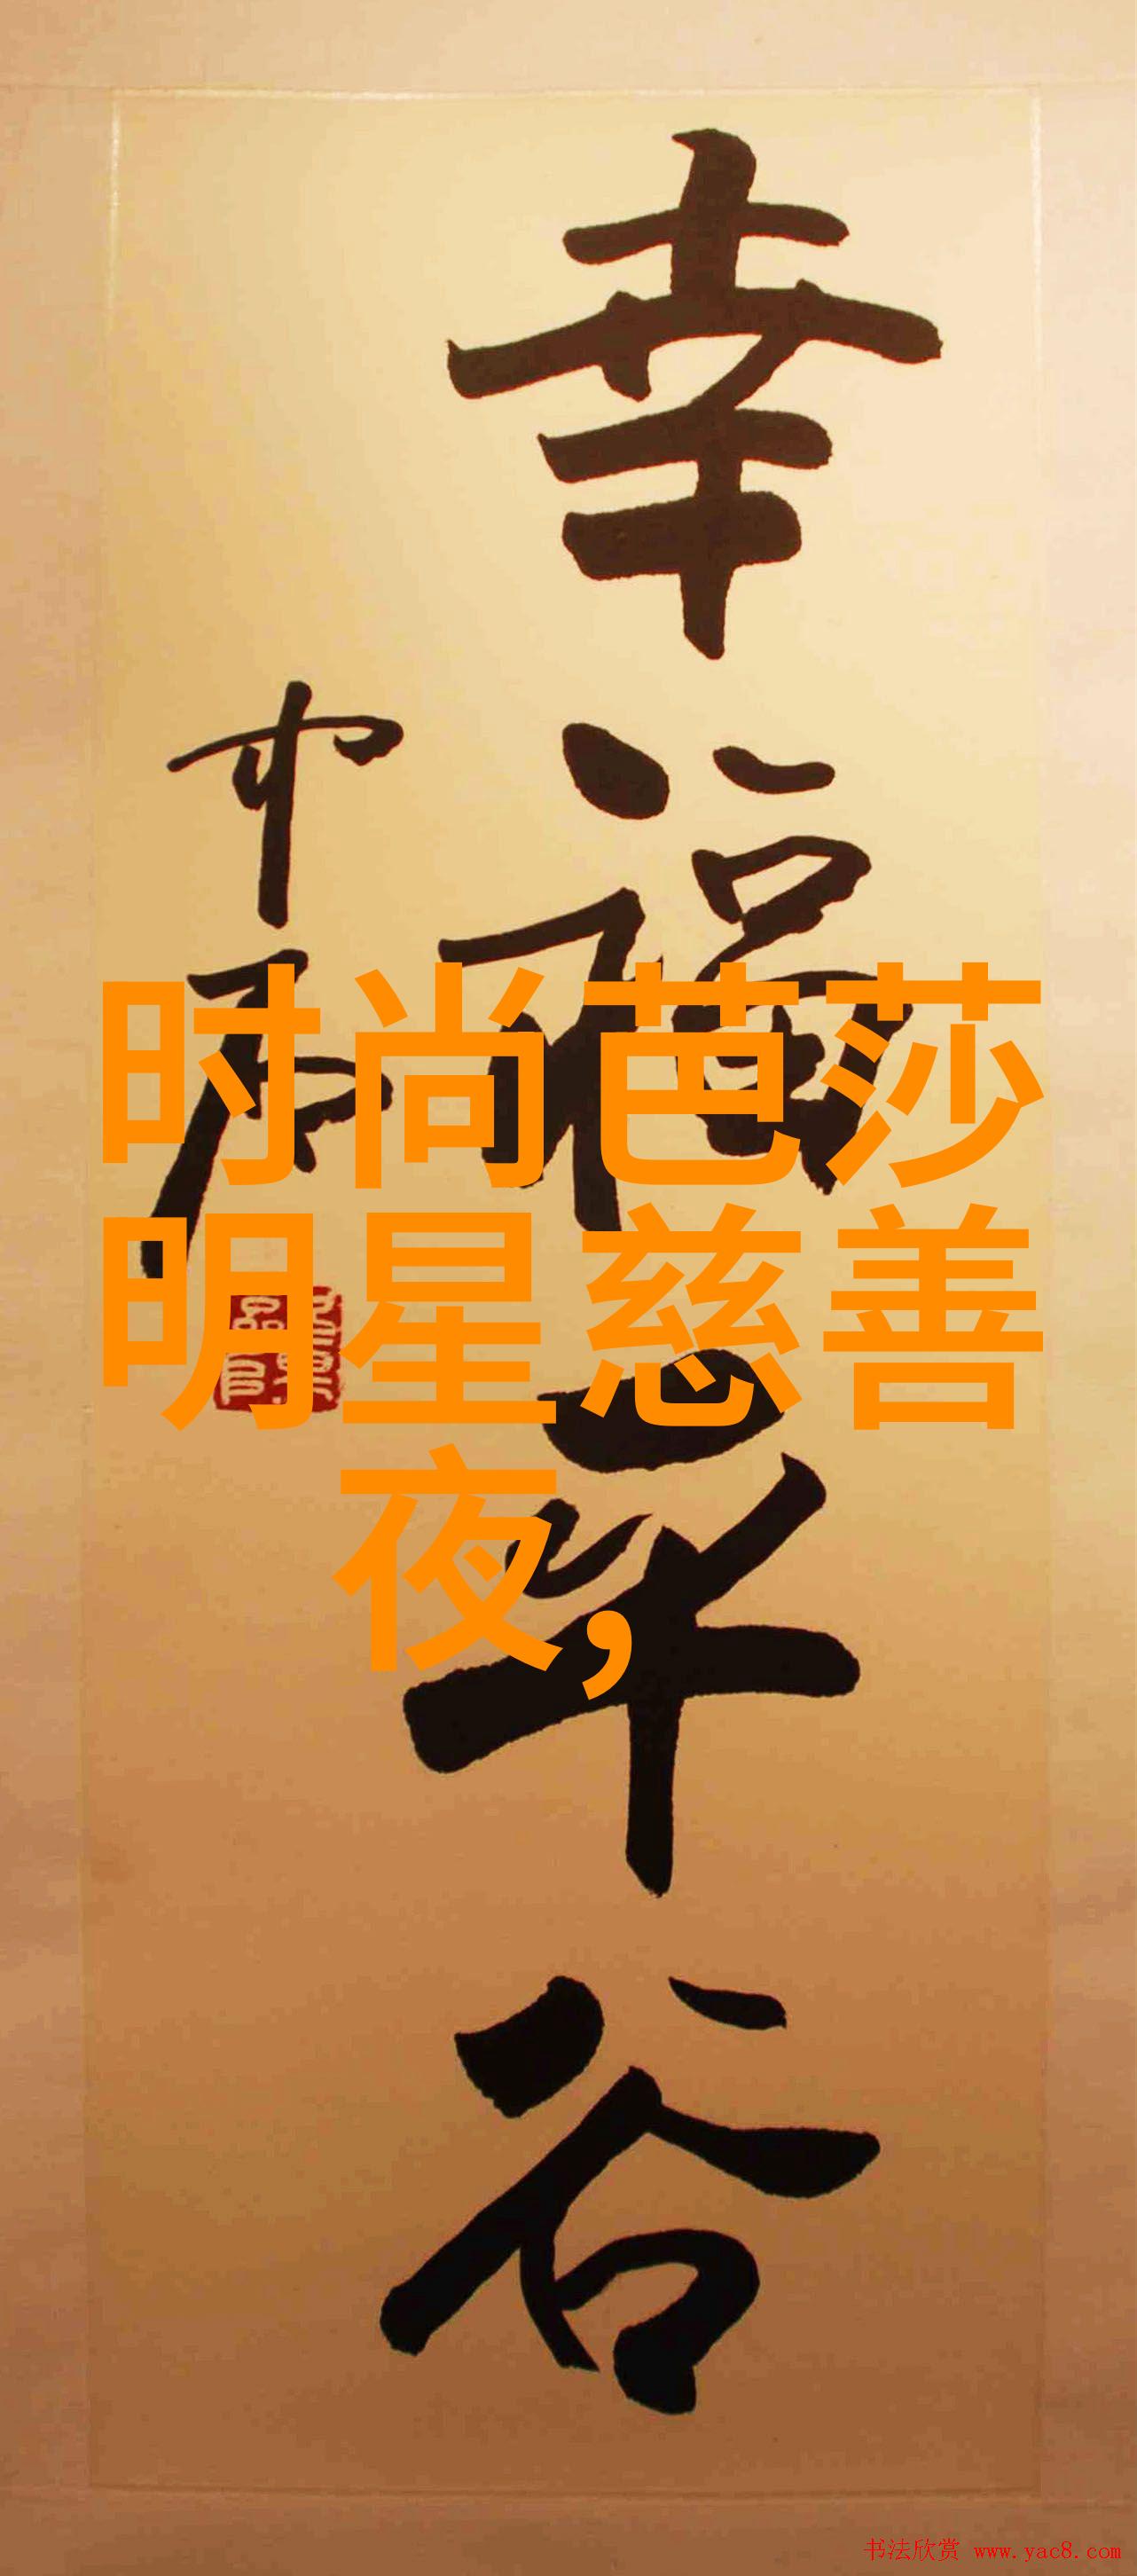 幸福平谷
中石
时尚芭莎
明星慈善
夜,
书法欣赏 www.yac8.com